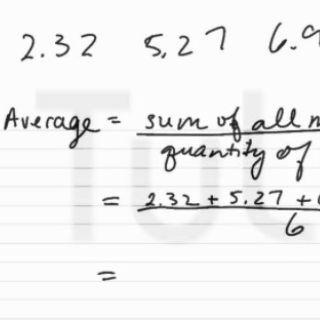 2.32 5.27 6.9
Average = sum of all
quantity of
= 2.32 + 5.27 +
6
=